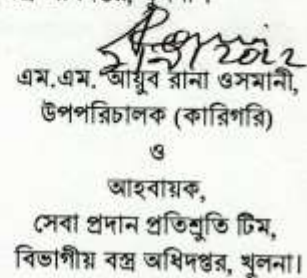 এম.এম. আয়ুব রানা ওসমানী,
উপপরিচালক (কারিগরি)
ও
আহবায়ক,
সেবা প্রদান প্রতিশ্রুতি টিম,
বিভাগীয় বস্ত্র অধিদপ্তর, খুলনা।